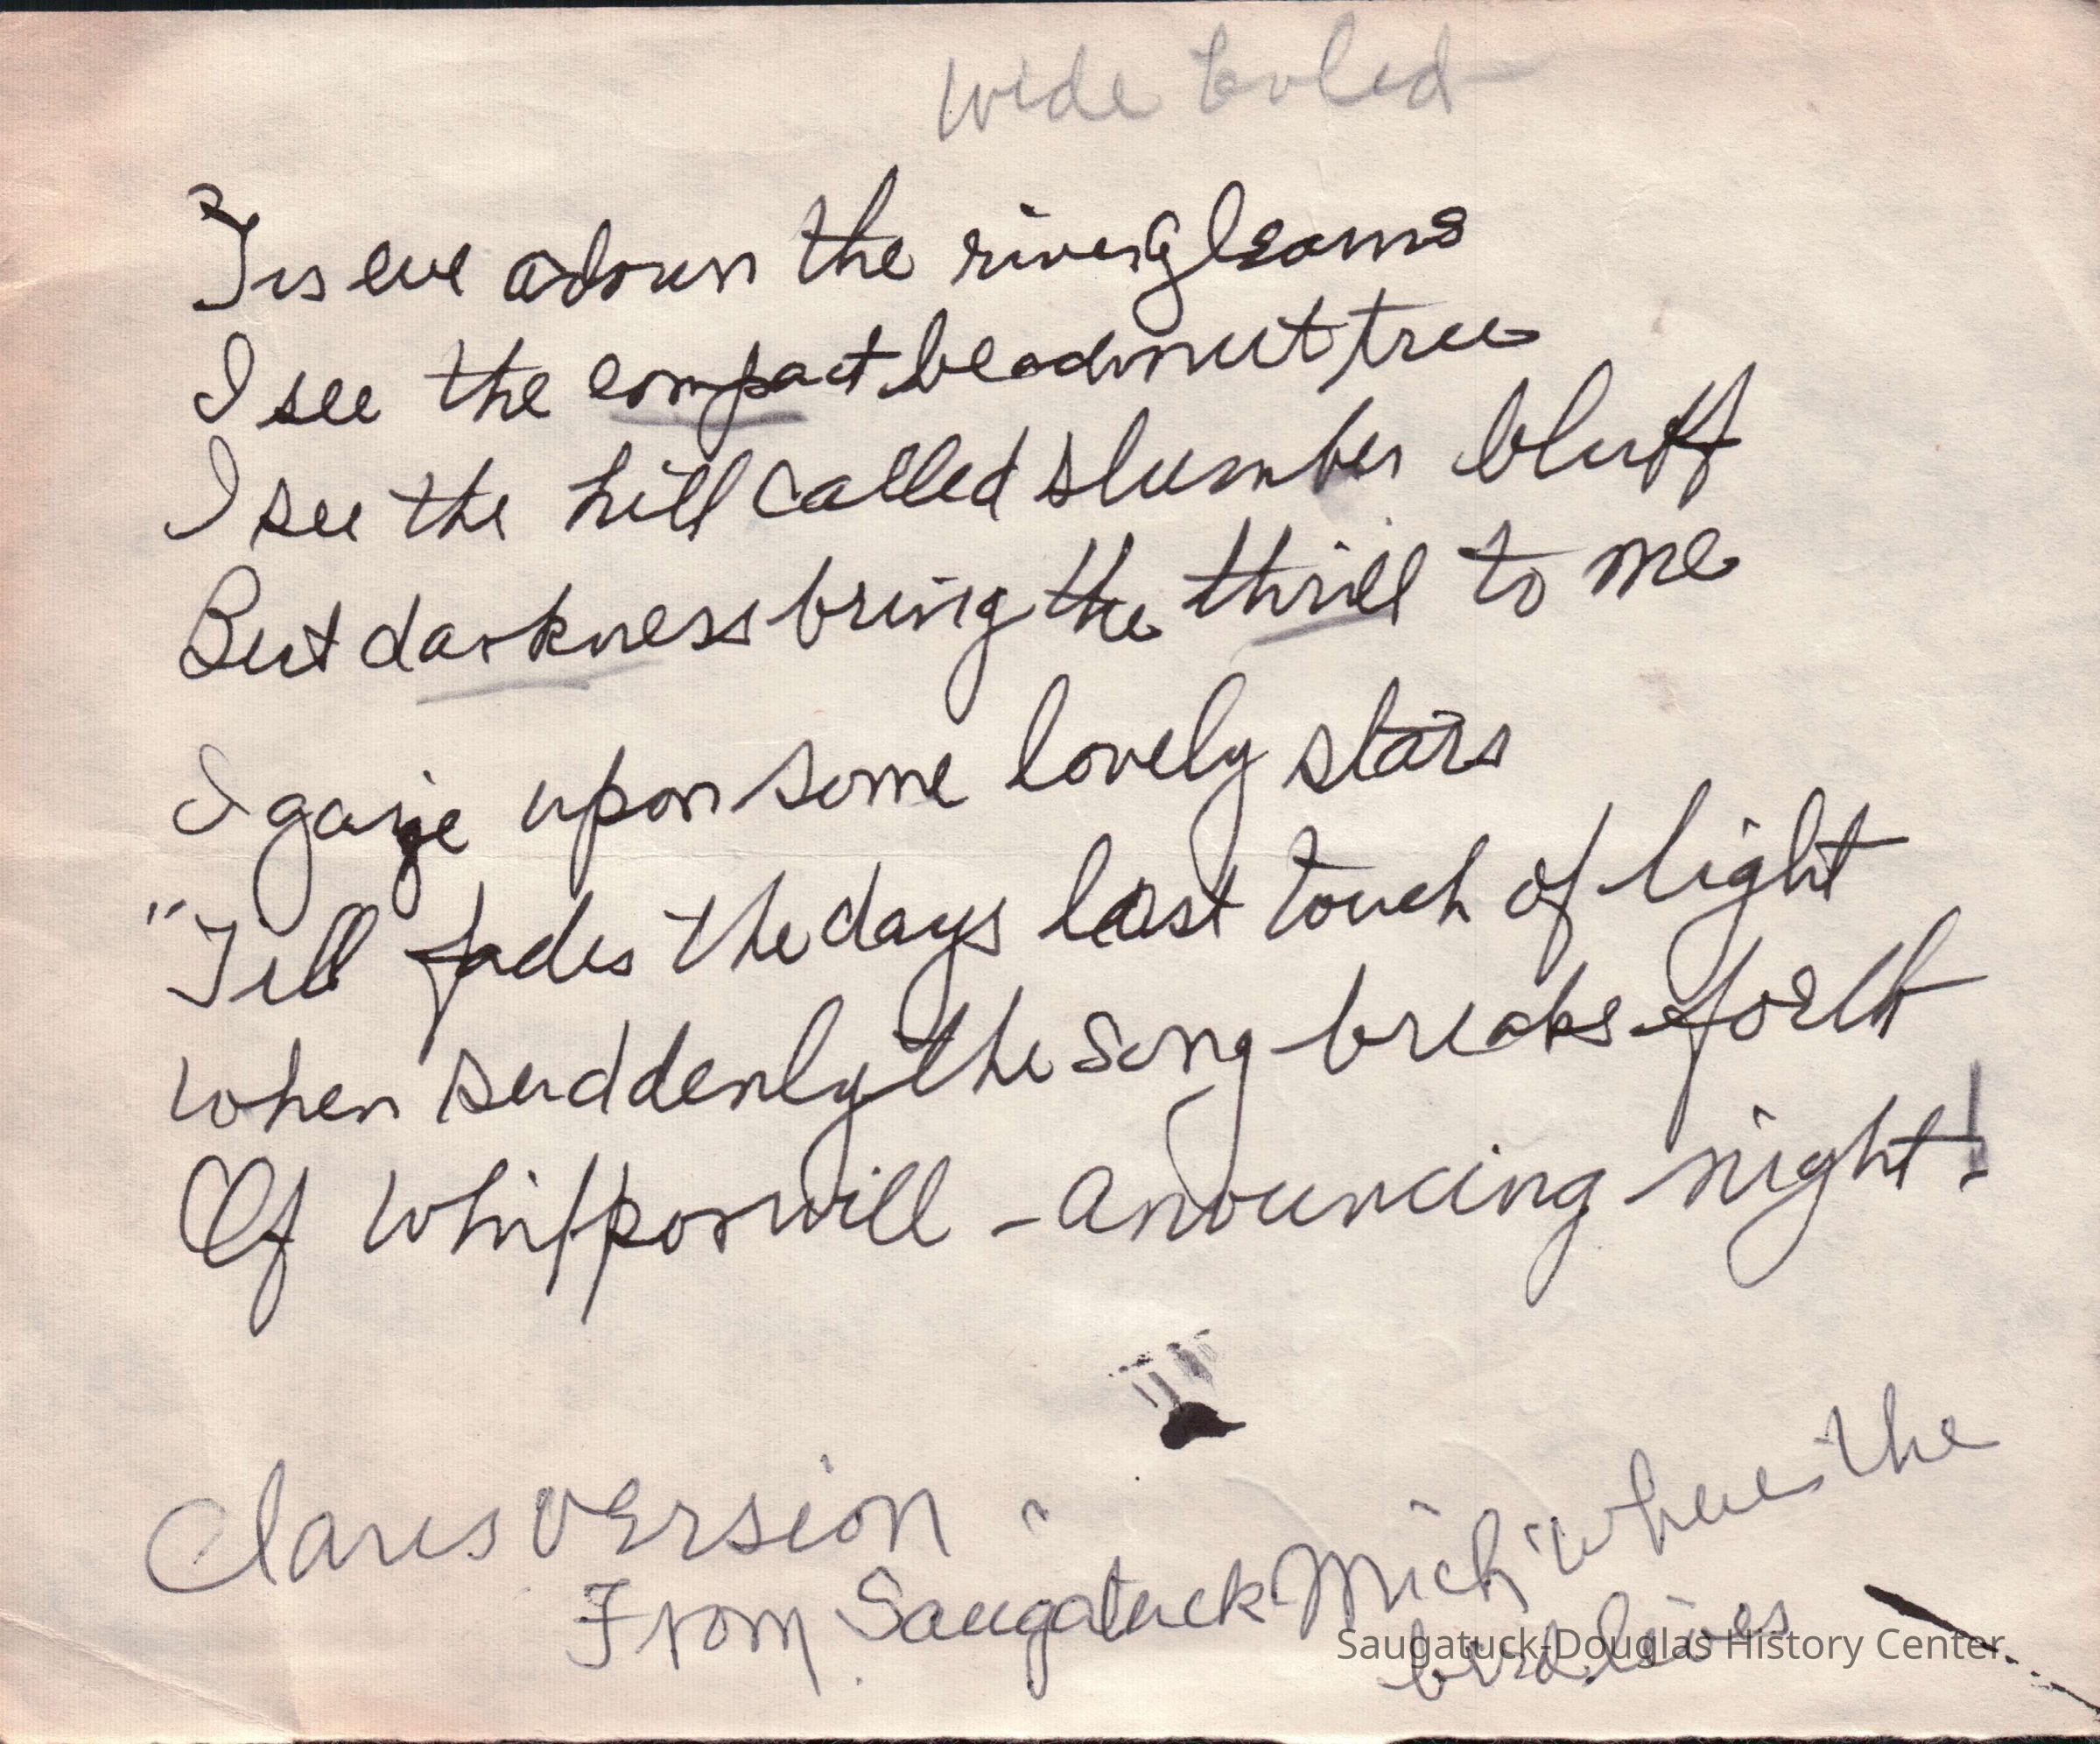 wide boled
'Tis eve adown the river gleams
I see the compact beadnut tree
I see the hill called slumber bluff
But darkness bring the thrill to me
I gaze upon some lovely stars
"Till fades the days last touch of light
when suddenly the song breaks forth
Of whipporwill - anouncing night!
Claris version
From Saugatuck Mich where the
bird lives
Saugatuck-Douglas History Center